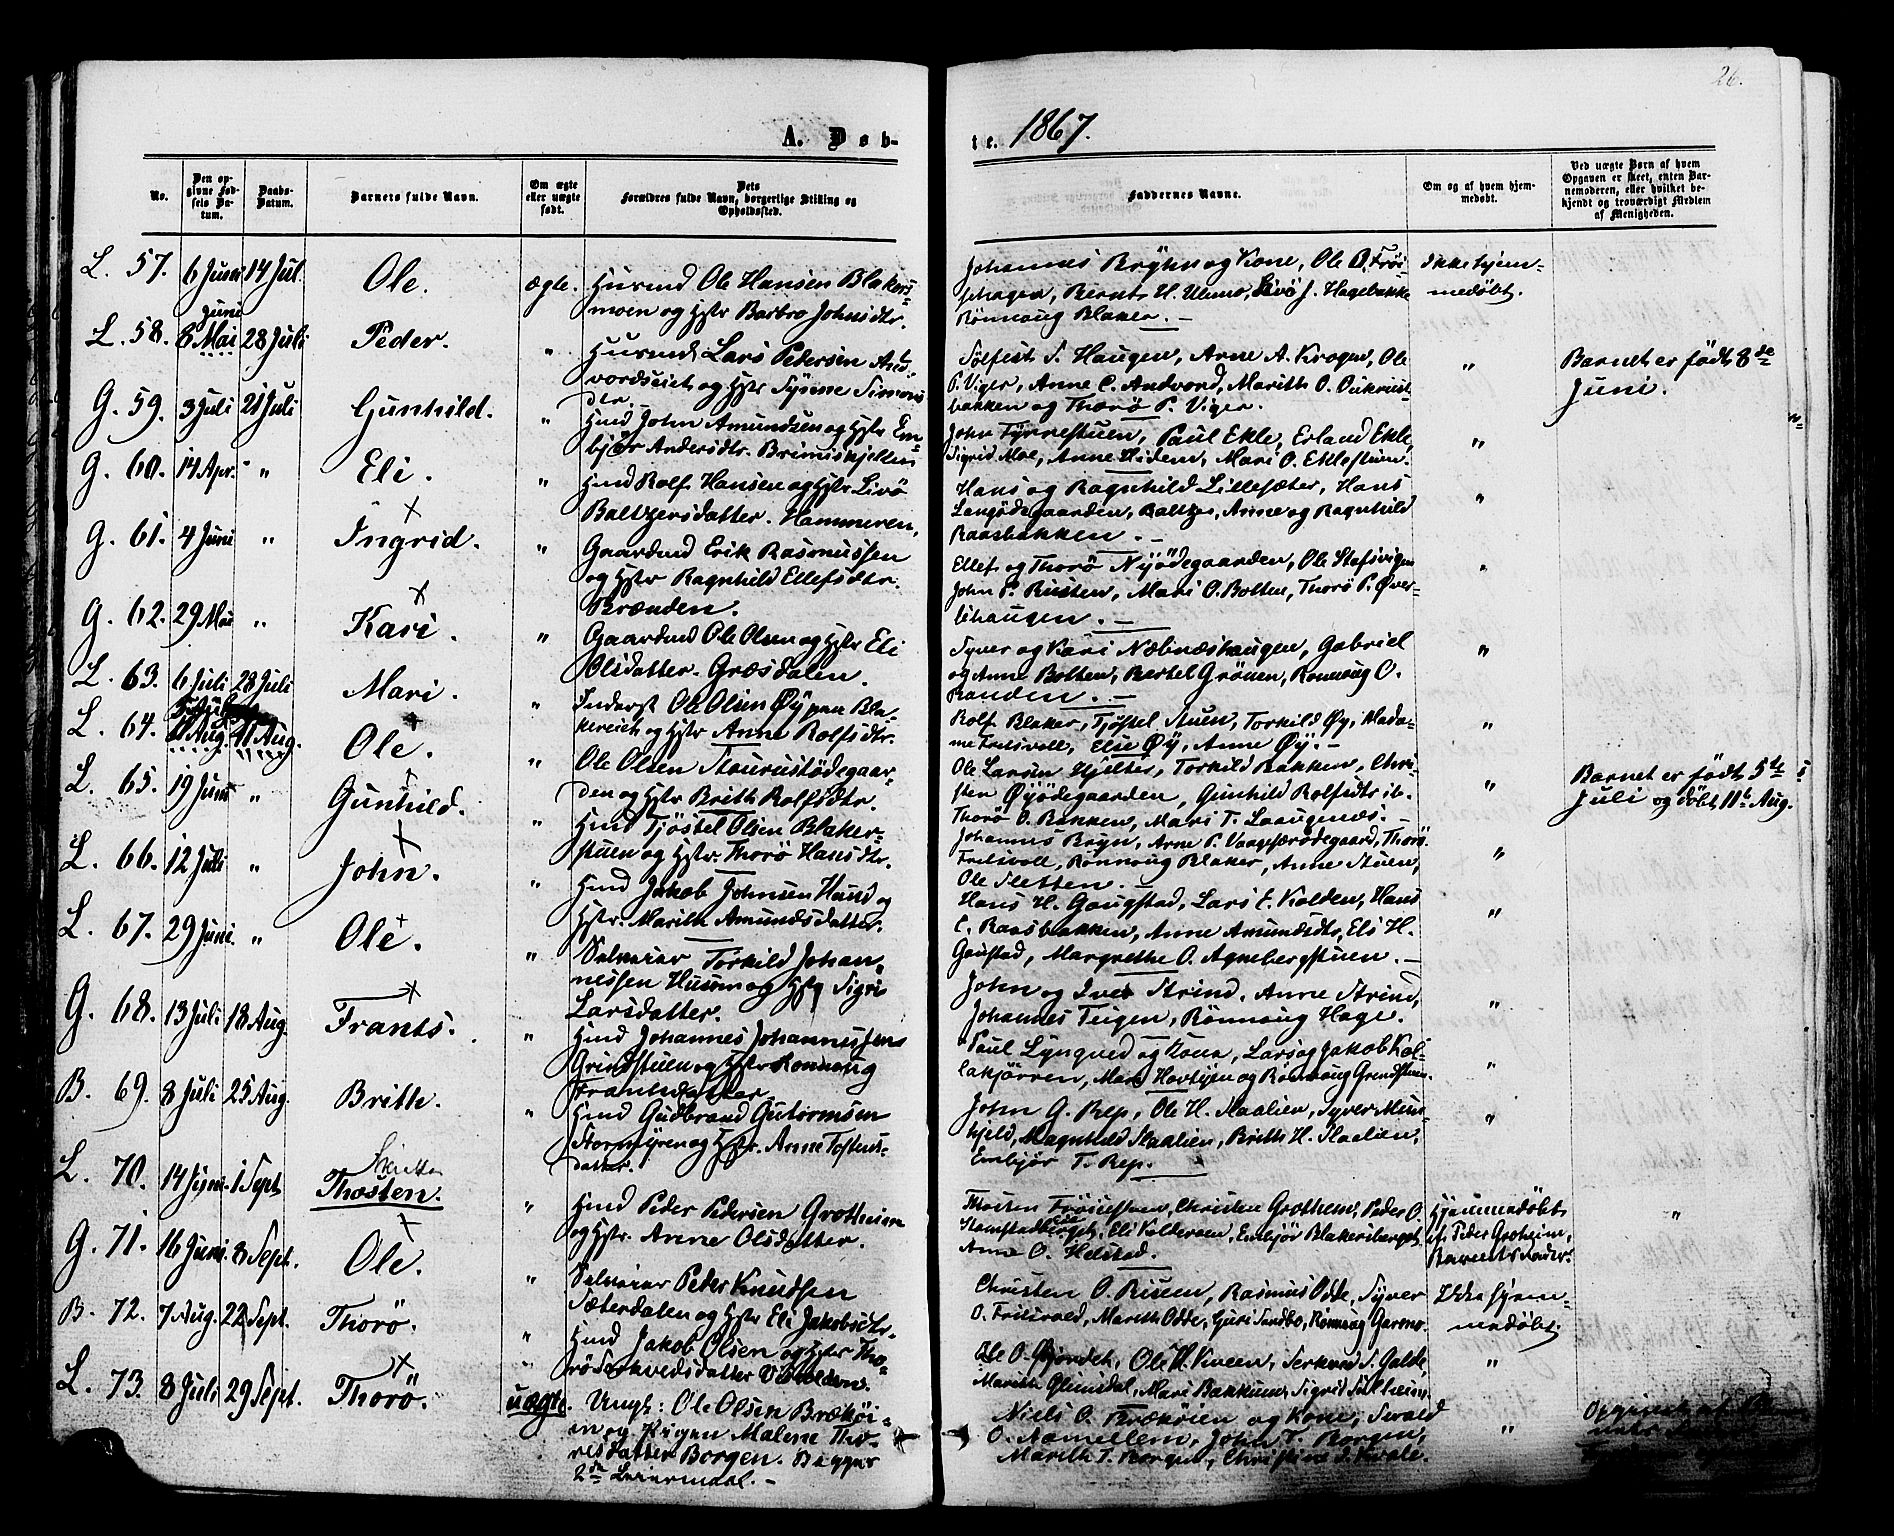 26.
A. Døb-
te. 1867.
No.
Den op-
givne Fød-
sels Da-
tum.
Daabs-
Datum.
Barnets fulde Navn.
Om ægte
eller uægte
født.
Dets
Forældres fulde Navn, borgerlige Stilling og
Opholdssted.
Faddernes Navne.
Om og af hvem hjem-
medøbt.
Ved uægte Børn af hvem
Opgaven er skeet, enten Bar-
nemoderen, eller hvilket be-
kjendt og troværdigt Medlem
af Menigheden.
L. 57. 6 Juni 14 Jul. Ole. ægte.
Husmd Ole Hansen Blakers-
moen og Hstr Barbro Johnsdtr.
Johannes Bryhn og Kone, Ole B. Frøi-
shagen, Bernt H. Ulmo, Livö J. Hagebakke
Rönnaug Blaker. —
Ikke hjem-
medøbt.
L. 58. Juni 8 Mai 28 Juli Peder. "
Husmd Lars Pedersen And-
vordseiet og Hstr Synne Simons
dtr.
Sølfest S. Haugen, Arne A. Krogen, Ole
P. Viger, Anne C. Andvord, Marith O.
bakken og Thorö P. Viger.
"
Barnet er født 8de
Juni.
G. 59. 3 Juli 21 Juli Gunhild. "
Hmd John Amundsen og Hstr Em-
bjør Andersdtr. Brimiskjellen
John Tynnestuen, Paul Ekle, Erland Ekle,
Sigrid Moe, Anne Hiden, Mari O. Eklestuen.
"
G. 60. 14 Apr. " Eli. "
Hmd Rolf Hansen og Hstr Livö
Baltzersdatter. Hammeren,
Hans og Ragnhild Lillesæter, Hans
Langödegaarden, Baltzer, Anne og Ragnhild
Raasbakken. —
"
G. 61. 4 Juni " Ingrid. "
Gaardmd Erik Rasmussen
og Hstr Ragnhild Ellefsdtr.
Brænden.
Ellef og Thorö Nyödegaarden, Ole Stafsvigen
John P. Rusten, Mari O. Bolten, Thorö P. Øver-
lihaugen. —
"
G. 62. 29 Mai " Kari. "
Gaardmd Ole Olsen og Hstr Eli
Olsdatter. Græsdalen.
Syver og Kari Næbnæshaugen, Gabriel
og Anne Bolten, Bertel Grönen, Rønnaug O.
Randen. —
"
L. 63. 6 Juli 28 Juli Mari. "
Inderst Ole Olsen Øy paa Bla-
kereiet og Hstr Anne Rolfsdtr.
Rolf Blaker, Tjøstel Stuen, Torkild Øy, Mada-
me Frilsvoll, Else Øy, Anne Øy. —
"
L. 64. 11 Aug. 11 Aug. Ole. "
Ole Olsen Staurustödegaar-
den og Hstr Brith Rolfsdtr.
Ole Larsen Hjelter, Torkild Bakken, Chri-
sten Øyödegaarden, Gunhild Rolfsdtr ib.
Thorö O. Bakken, Mari T. Laaugenæs. —
"
Barnet er født 5te
Juli og døbt 11te Aug.
L. 65. 19 Juni " Gunhild. "
Hmd Tjöstel Olsen Blaker-
stuen og Hstr. Thorö Hansdtr.
Johannes Bryn, Arne P. Vaagesærödegaard, Thorö
Frilsvoll, Rønnaug Blaker, Anne Stuen,
Ole Sletten. —
"
L. 66. 12 Juli " John. "
Hmd Jakob Johnsen Haud og
Hstr. Marith Amundsdatter.
Hans H. Gaugstad, Lars E. Kolden, Hans
E. Raasbakken, Anne Amundsdtr, Eli H.
Gaustad, Margrethe O. Agnebergstuen. —
"
L. 67. 29 Juni. " Ole. "
Selveier Torkild Johan-
nessen Husom og Hstr Sigri
Larsdatter.
John og Iver Strind, Anne Strind,
Johannes Teigen, Rönnaug Hage.
"
G. 68. 13 Juli 18 Aug. Frants. "
Hmd Johannes Johannessen
Grindstuen og Hstr Rønnaug
Frantsdatter.
Paul Lyngved og Kone, Lars og Jakob Kol-
lakjørren, Mari Hovtyen og Rönnaug Grindstuen.
"
B. 69. 8 Juli 25 Aug. Brith. "
Hmd Gudbrand Gutormsen
Stormyren og Hstr. Anne Tostens-
datter.
John G. Rep, Ole H. Staalien, Syver Mun-
kjeld, Magnhild Staalien, Brith H. Staalien,
Embjør T. Rep.
"
L. 70. 14 Juni. 1 Sept Thosten. "
Hmd Peder Pedersen Grotheim
og Hstr. Anne Olsdatter.
Thosten Fröisesteen, Christen Grotheim, Peder O.
Stamstadberget, Eli Kolderoen, Embjør Blakersberget,
Anne O. Helstad.
Hjemmedøbt
af Peder Grotheim,
Barnets Fader.
"
G. 71. 16 Juni. 8 Sept. Ole. "
Selveier Peder Knudsen
Sæterdalen og Hstr Eli Jakobsdtr.
Christen O. Risuen, Rasmus Odde, Syver
O. Frilsvold, Marith Odde, Guri Sandbo, Rønnaug Garmo.
Ikke hjem-
medøbt.
B. 72. 7 Aug. 22 Sept. Thorö. "
Hmd Jakob Olsen og Hstr Tho-
rö Serkvedsdatter Visdalen.
Ole O. Gjeindet, Ole H. Kveen, Serkved S. Galde,
Marith Glimsdal, Mari Bakkum, Sigrid Sulheim.
"
L. 73. 8 Juli 29 Sept. Thorö. uægte.
Ungk: Ole Olsen Brækøi-
en og Pigen Malene Tho-
resdatter Borgen. Begges
2det Leiermaal. —
Niels O. Brækøien og Kone, Sevald
O. Aamellem, John T. Borgen,
Marith T. Borgen, Christine S. Kvale.
"